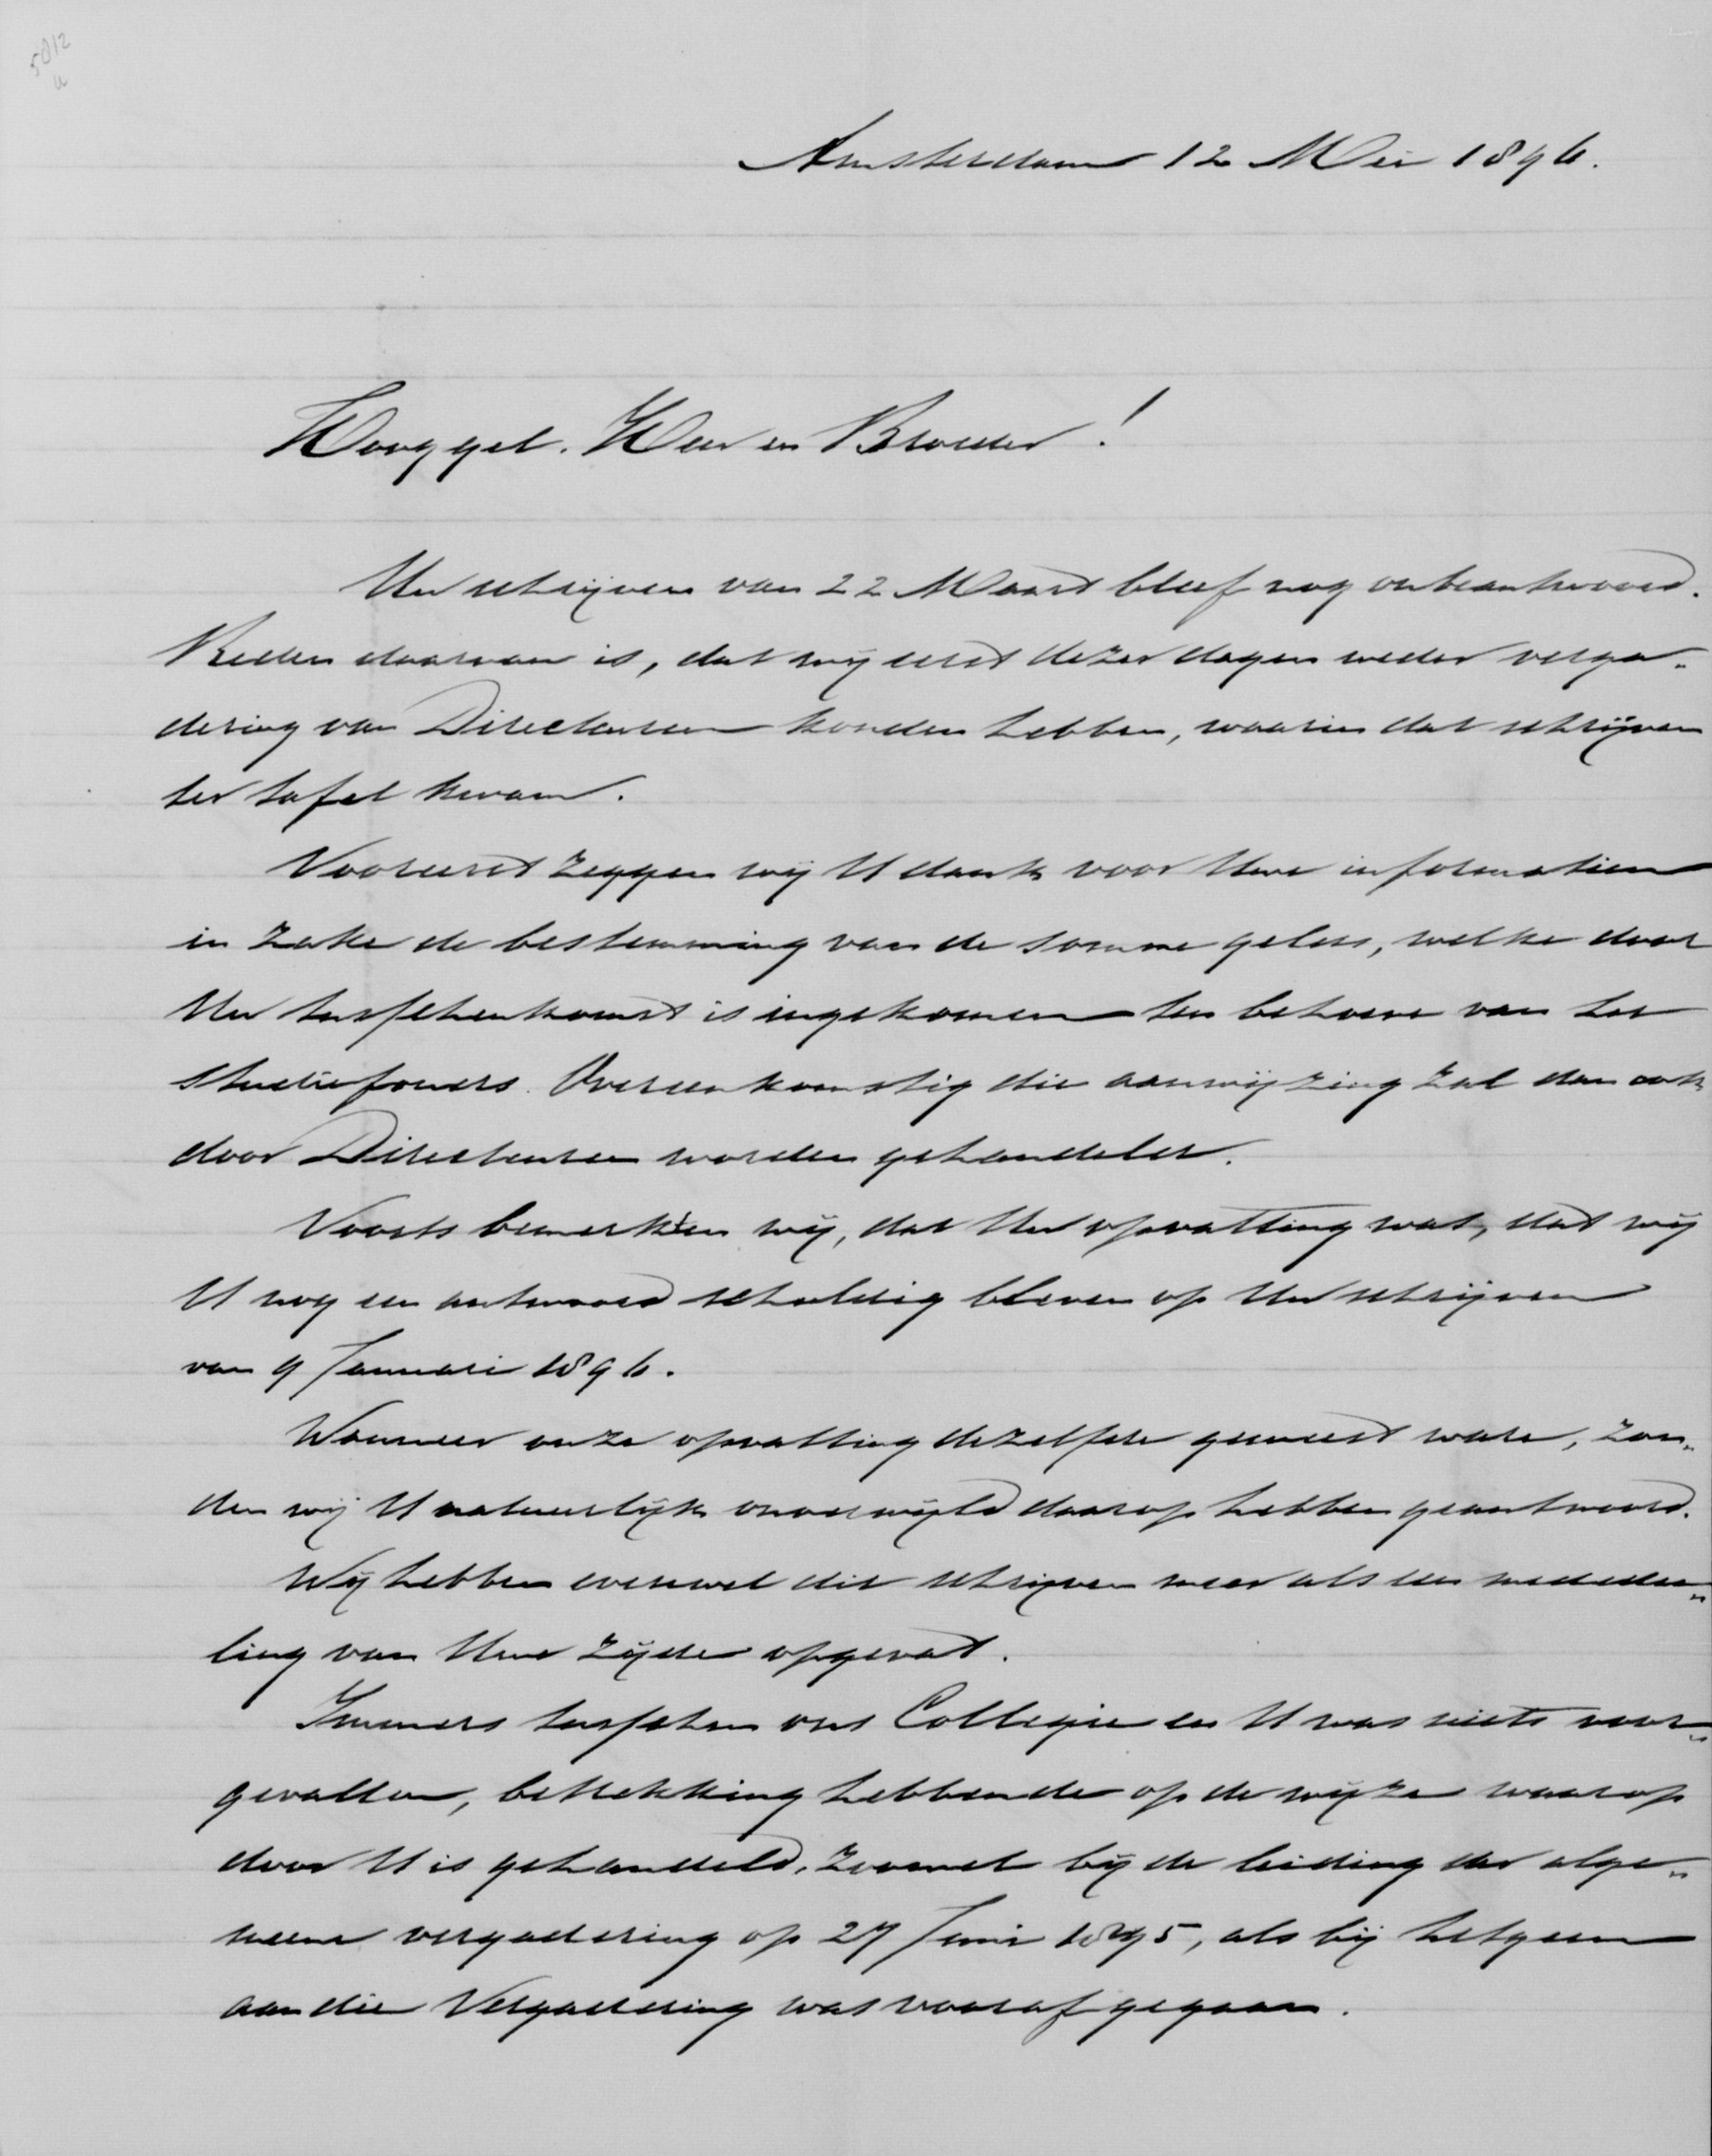 5012
Amsterdam 12 Mei 1896.
Hooggel. Heer en Broeder!
Uw schrijven van 22 Maart bleef nog onbeantwoord.
Reden daarvan is, dat wij eerst dezer dagen weder verga„
dering van Directeuren konden hebben, waarin dat schrijven
ter tafel kwam.
Vooreerst zeggen wij U dank voor Uwe informatien
in zake de bestemming van de somme gelds, welke door
Uw tusschenkomst is ingekomen ten behoeve van het
studiefonds. Overeenkomstig die aanwijzing zal dan ook
door Directeuren worden gehandeld.
Voorts bemerkten wij, dat Uw opvatting was, dat wij
U nog een antwoord schuldig bleven op Uw schrijven
van 9 Januari 1896.
Wanneer onze opvatting dezelfde geweest ware, zou„
den wij U natuurlijk onverwijld daarop hebben geantwoord.
Wij hebben evenwel dit schrijven meer als een mededee„
ling van Uwe zijde opgevat.
Immers tusschen ons Collegie en U was niets voor„
gevallen, betrekking hebbende op de wijze waarop
door U is gehandeld, zoowel bij de leiding der alge„
meene vergadering op 27 Juni 1895, als bij hetgeen
aan die Vergadering was voorafgegaan.